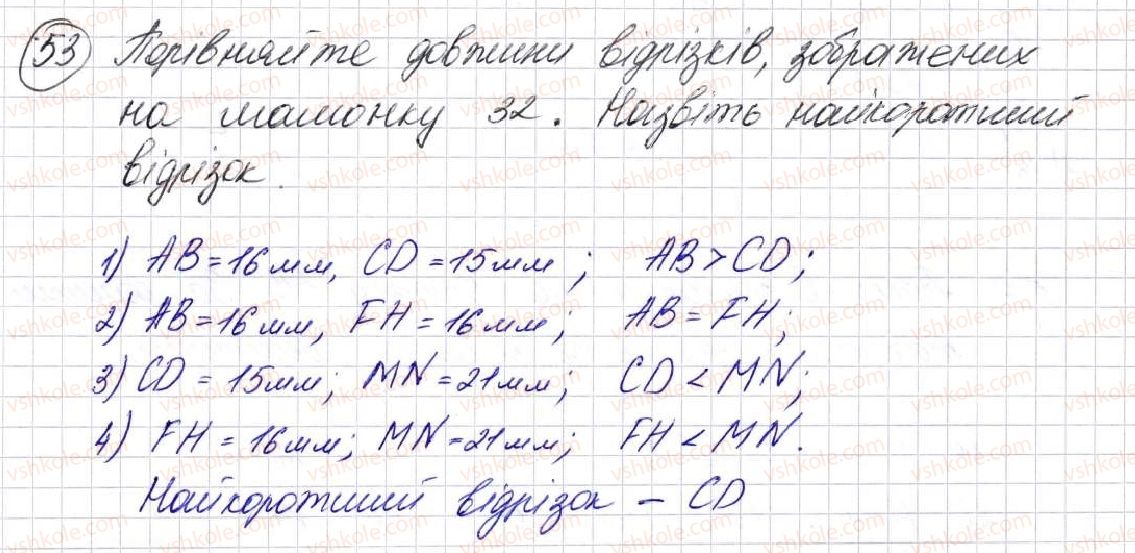 53 Порівняйте довжини відрізків, зображених
на малюнку 32. Назвіть найкоротший
відрізок.
1) AB = 16 мм, CD = 15 мм ; AB > CD ;
2) AB = 16 мм, FH = 16 мм ; AB = FH ;
3) CD = 15 мм ; MN = 21 мм ; CD < MN ;
4) FH = 16 мм ; MN = 21 мм ; FH < MN.
Найкоротший відрізок – CD